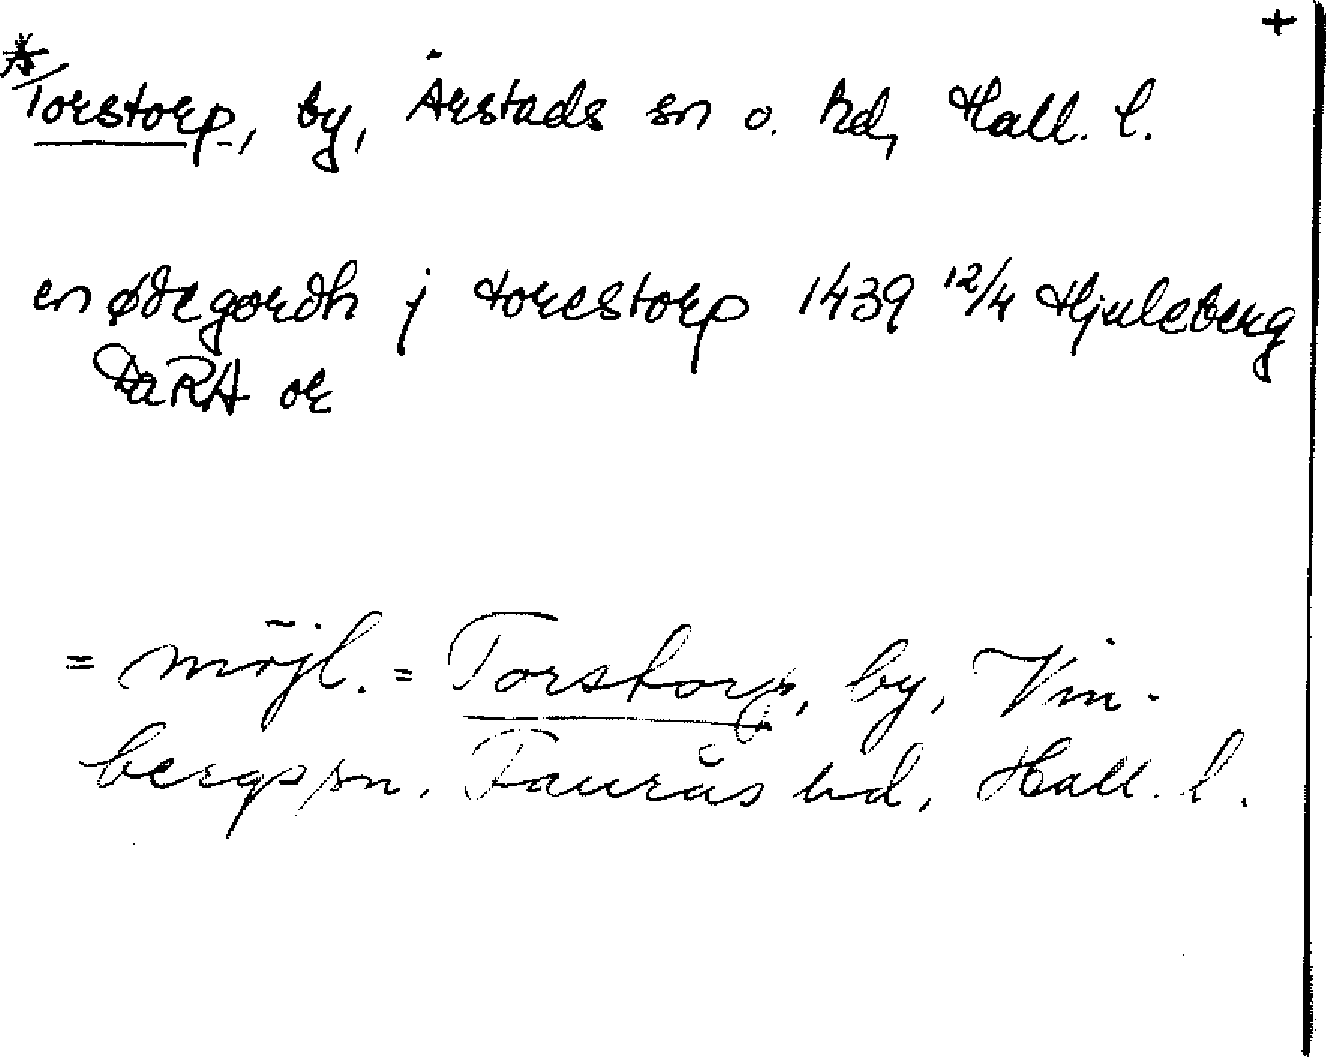 +
* Torstorp, by, Årstads sn o. hd, Hall. l.
en ødegordh j torestorp 1439 12/4 Hjuleberg
DaRA or
= möjl. = Torstorp, by, Vin-
bergs sn. Faurås hd, Hall. l.